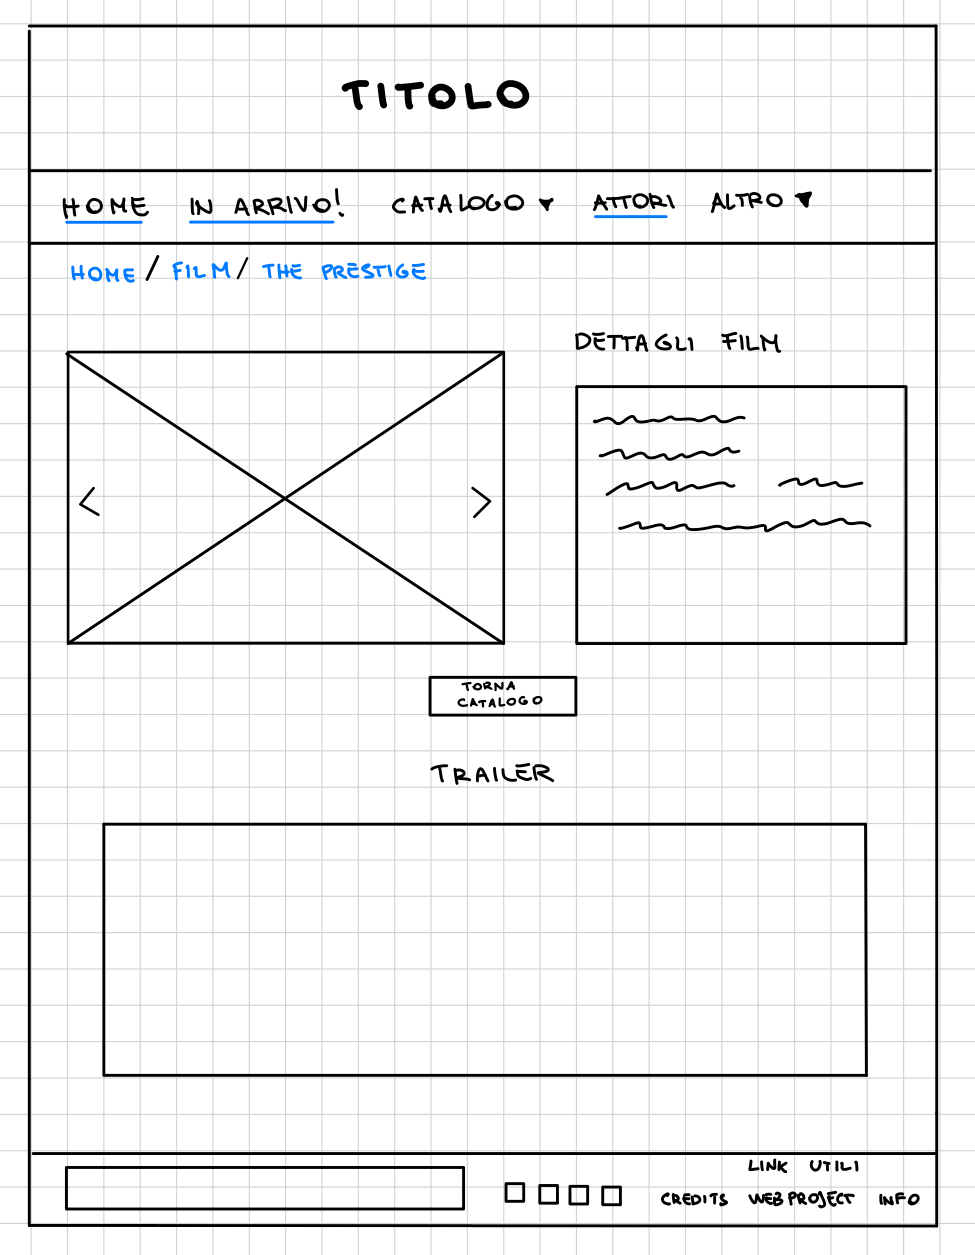 TITOLO
HOME IN ARRIVO! CATALOGO ▼ ATTORI ALTRO ▼
HOME / FILM / THE PRESTIGE
DETTAGLI FILM
< >
TORNA
CATALOGO
TRAILER
LINK UTILI
CREDITS WEB PROJECT INFO